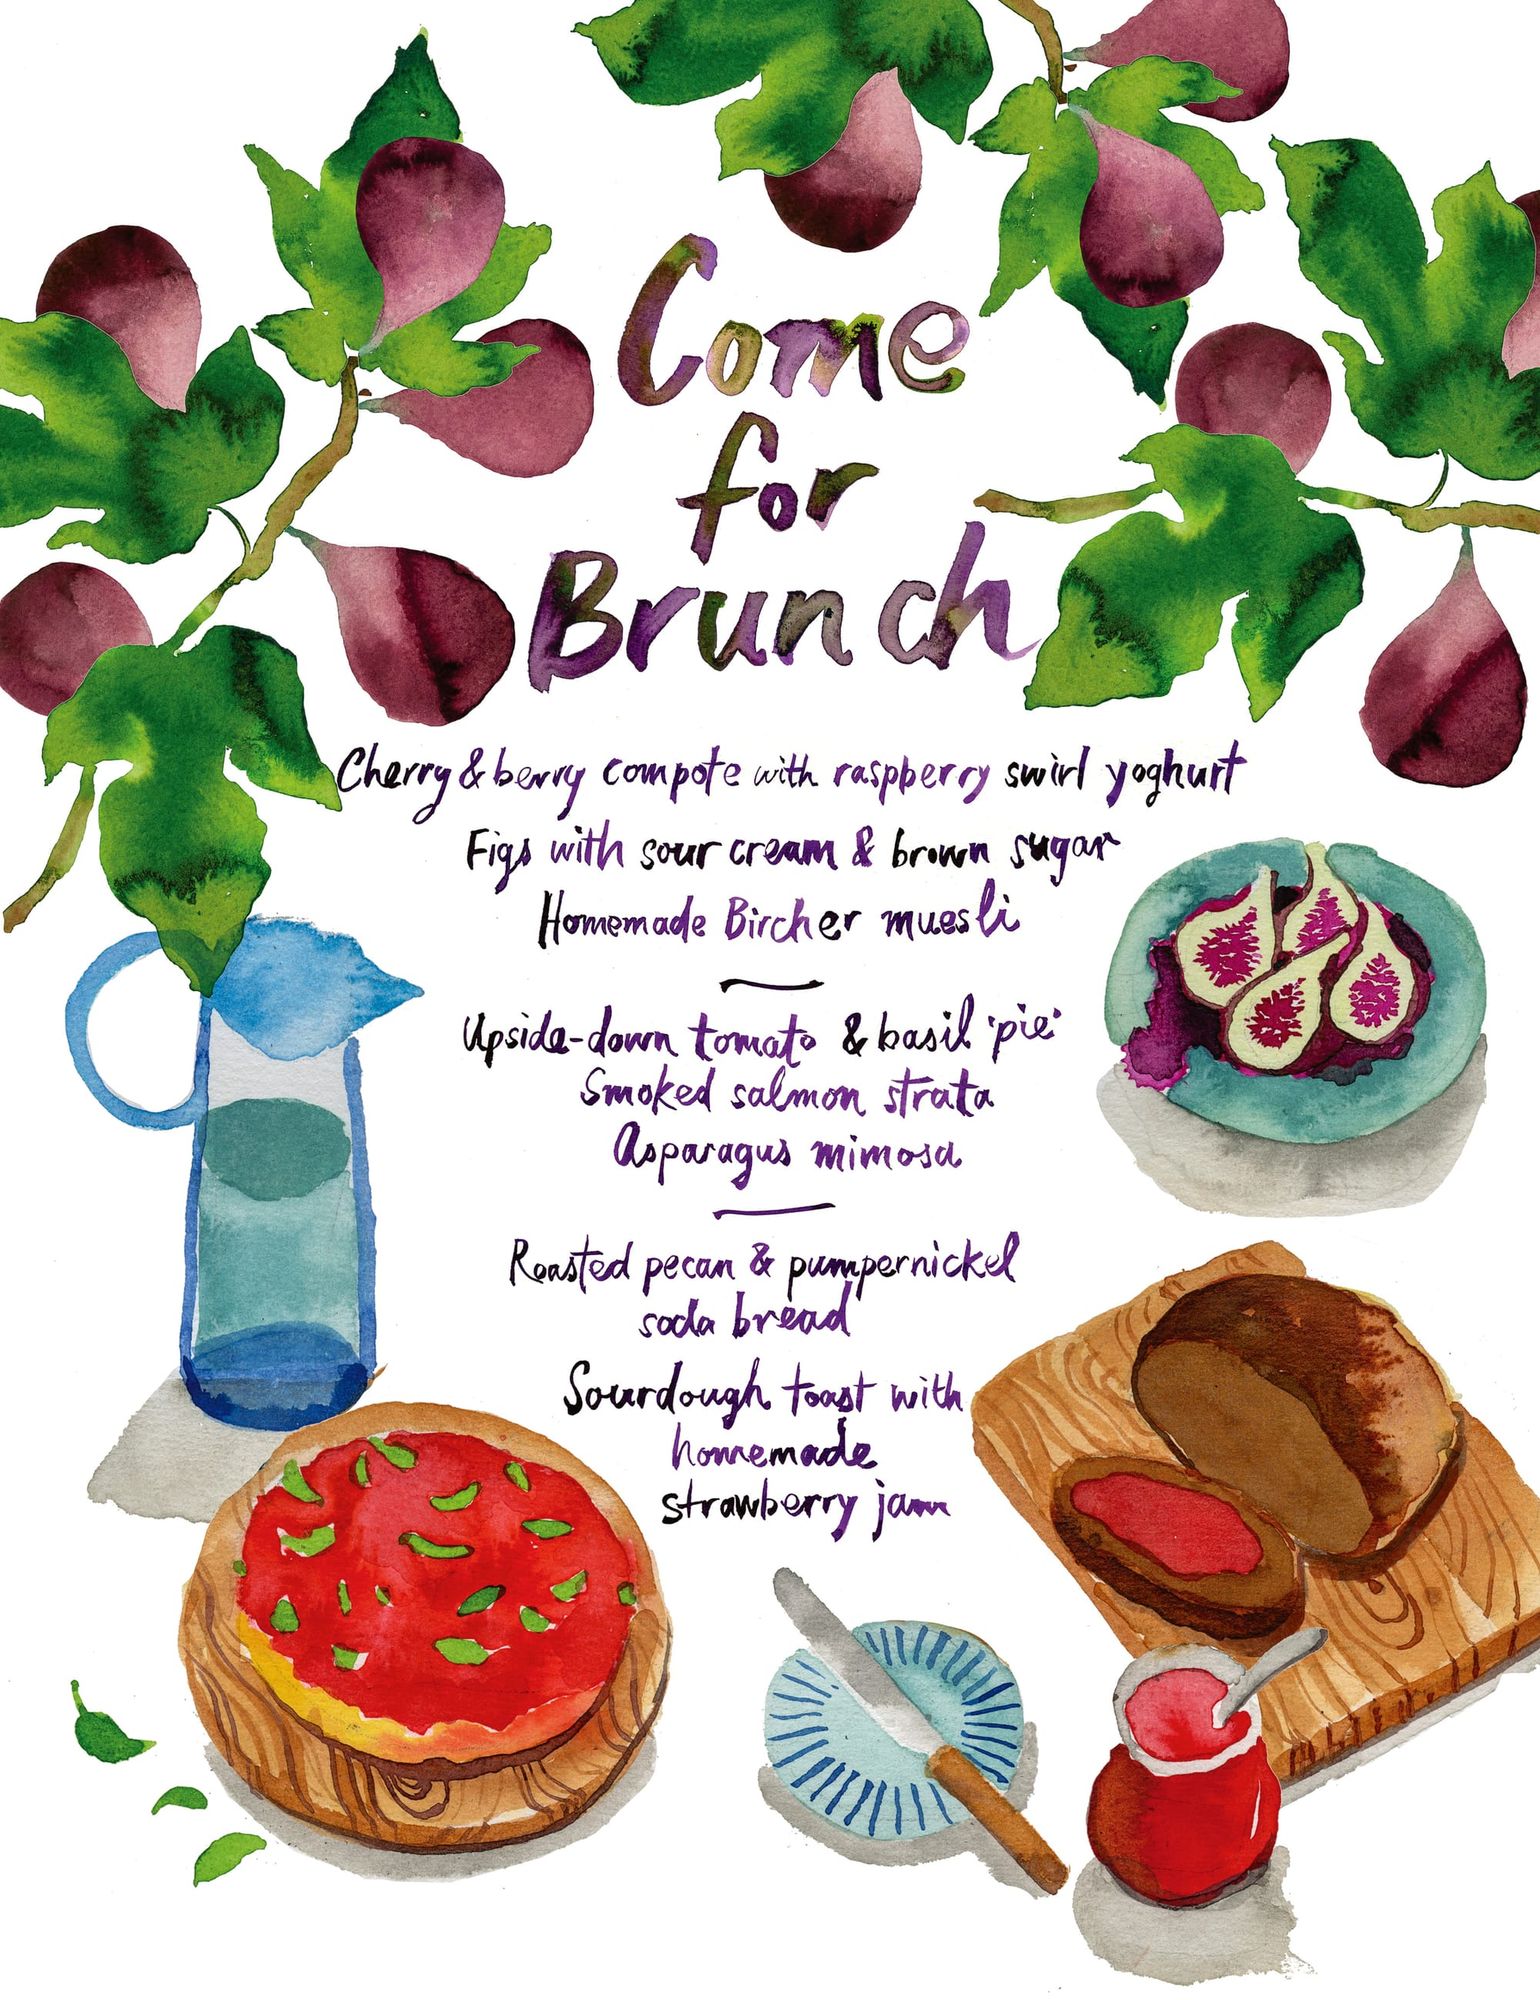 Come
for
Brunch
Cherry & berry compote with raspberry swirl yoghurt
Figs with sour cream & brown sugar
Homemade Bircher muesli
Upside-down tomato & basil 'pie'
Smoked salmon strata
Asparagus mimosa
Roasted pecan & pumpernickel
soda bread
Sourdough toast with
homemade
strawberry jam